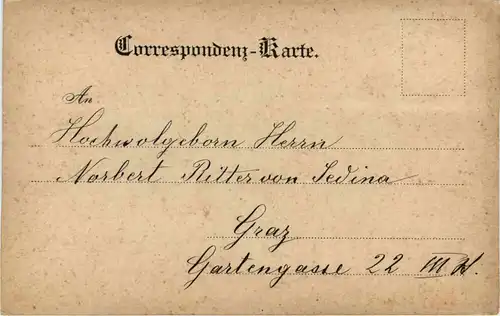 Correspondenz-Karte.
An
Hochwolgeborn Herrn
Norbert Ritter von Sedina
Graz
Gartengasse 22 III